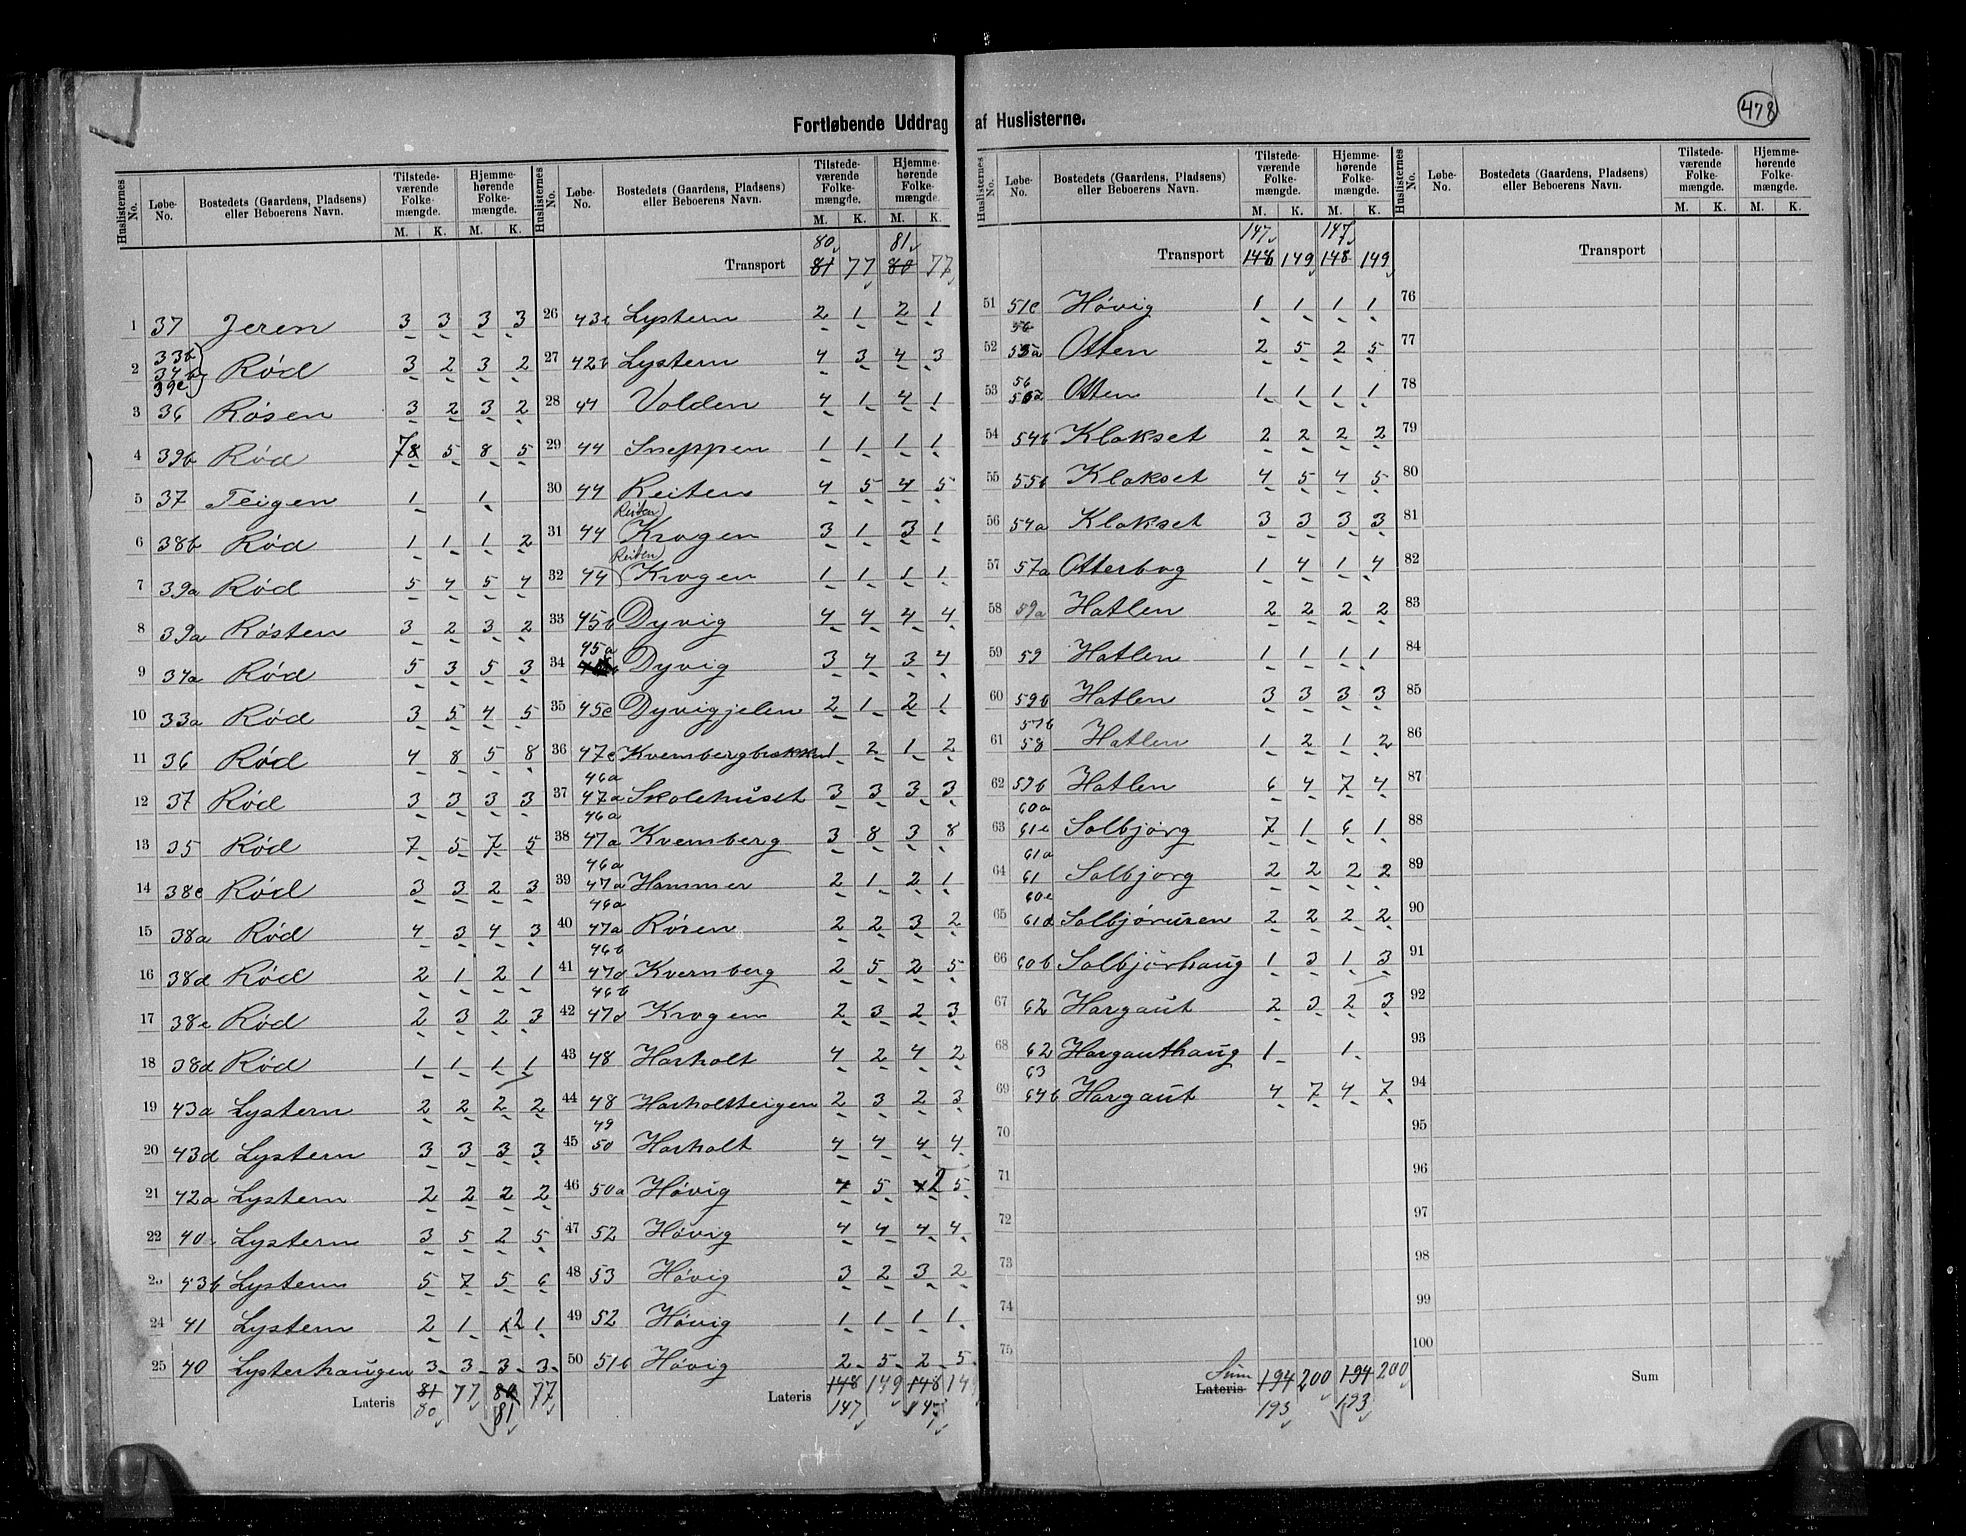 478
Fortløbende Uddrag af Huslisterne.
Huslisternes No. Løbe-No. Bostedets (Gaardens, Pladsens) eller Beboerens Navn. Tilstedeværende Folkemængde. M. K. Hjemmehørende Folkemængde. M. K.
1 37 Jeren 3 3 3 3
2 33b 34b 39c Rød 3 2 3 2
3 36 Røsen 3 2 3 2
4 39b Rød 78 5 8 5
5 37 Teigen 1 1
6 38b Rød 1 1 1 2
7 39a Rød 5 4 5 4
8 39a Røsten 3 2 3 2
9 34a Rød 5 3 5 3
10 33a Rød 3 5 4 5
11 36 Rød 4 8 5 8
12 37 Rød 3 3 3 3
13 35 Rød 7 5 7 5
14 38c Rød 3 3 2 3
15 38a Rød 4 3 4 3
16 38d Rød 2 1 2 1
17 38e Rød 2 3 2 3
18 38d Rød 1 1 1 1
19 43a Lystern 2 2 2 2
20 43d Lystern 3 3 3 3
21 42a Lystern 2 2 2 2
22 40 Lystern 3 5 2 5
23 43b Lystern 5 7 5 6
24 41 Lystern 2 1 2 1
25 40 Lysterhaugen 3 3 3 3
Lateris 81 77 80 77
80 81
Huslisternes No. Løbe-No. Bostedets (Gaardens, Pladsens) eller Beboerens Navn. Tilstedeværende Folkemængde. M. K. Hjemmehørende Folkemængde. M. K.
80 81
Transport 81 77 80 77
26 43c Lystern 2 1 2 1
27 42b Lystern 4 3 4 3
28 44 Volden 4 1 4 1
29 44 Sneppen 1 1 1 1
30 44 Reiten 4 5 4 5
31 44 (Reiten) Krogen 3 1 3 1
32 44 (Reiten) Krogen 1 1 1 1
33 45b Dyvig 4 4 4 4
34 45a Dyvig 3 4 3 4
35 45c Dyvigjelen 2 1 2 1
36 47c Kvernbergbrækken 1 2 1 2
37 46a 47a Skolehuset 3 3 3 3
38 46a 47a Kvernberg 3 8 3 8
39 46a 47a Hammer 2 1 2 1
40 46a 47a Røsen 2 2 3 2
41 46b 47d Kvernberg 2 5 2 5
42 46b 47d Krogen 2 3 2 3
43 48 Harholt 4 2 4 2
44 48 Harholtteigen 2 3 2 3
45 49 50 Harholt 4 4 4 4
46 50a Høvig 4 5 2 5
47 52 Høvig 4 4 4 4
48 53 Høvig 3 2 3 2
49 52 Høvig 1 1 1 1
50 51b Høvig 2 5 2 5
Lateris 148 149 148 149
147 147
Huslisternes No. Løbe-No. Bostedets (Gaardens, Pladsens) eller Beboerens Navn. Tilstedeværende Folkemængde. M. K. Hjemmehørende Folkemængde. M. K.
147 147
Transport 148 149 148 149
51 51c Høvig 1 1 1 1
52 56 55a Otten 2 5 2 5
53 56 Otten 1 1 1 1
54 54b Klakset 2 2 2 2
55 55b Klakset 4 5 4 5
56 54a Klakset 3 3 3 3
57 57a Otterbog 1 4 1 4
58 59a Hatlen 2 2 2 2
59 59 Hatlen 1 1 1 1
60 59b Hatlen 3 3 3 3
61 57b 58 Hatlen 1 2 1 2
62 59b Hatlen 6 4 7 4
63 60a 61c Solbjørg 7 1 6 1
64 61a 61 Solbjørg 2 2 2 2
65 60c 61d Solbjøruren 2 2 2 2
66 60b Solbjørhaug 1 3 1 3
67 62 Hargaut 2 3 2 3
68 62 Hargauthaug 1 1
69 63 64b Hargaut 4 7 4 7
70
71
72
73
74
75
Sum Lateris 194 200 194 200
193 193
Huslisternes No. Løbe-No. Bostedets (Gaardens, Pladsens) eller Beboerens Navn. Tilstedeværende Folkemængde. M. K. Hjemmehørende Folkemængde. M. K.
Transport
76
77
78
79
80
81
82
83
84
85
86
87
88
89
90
91
92
93
94
95
96
97
98
99
100
Sum